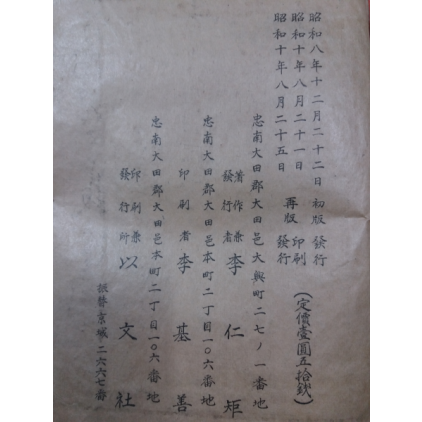 昭和八年十二月二十二日 初版 發行
昭和十年八月二十一日 印刷
昭和十年八月二十五日 再版 發行
(定價壹圓五拾錢)
忠南大田郡大田邑大興町二七ノ一番地
著作兼發行者 李仁矩
忠南大田郡大田邑本町二丁目一〇六番地
印刷者 李基善
忠南大田郡大田邑本町二丁目一〇六番地
印刷兼發行所 以文社
振替京城二六六七番